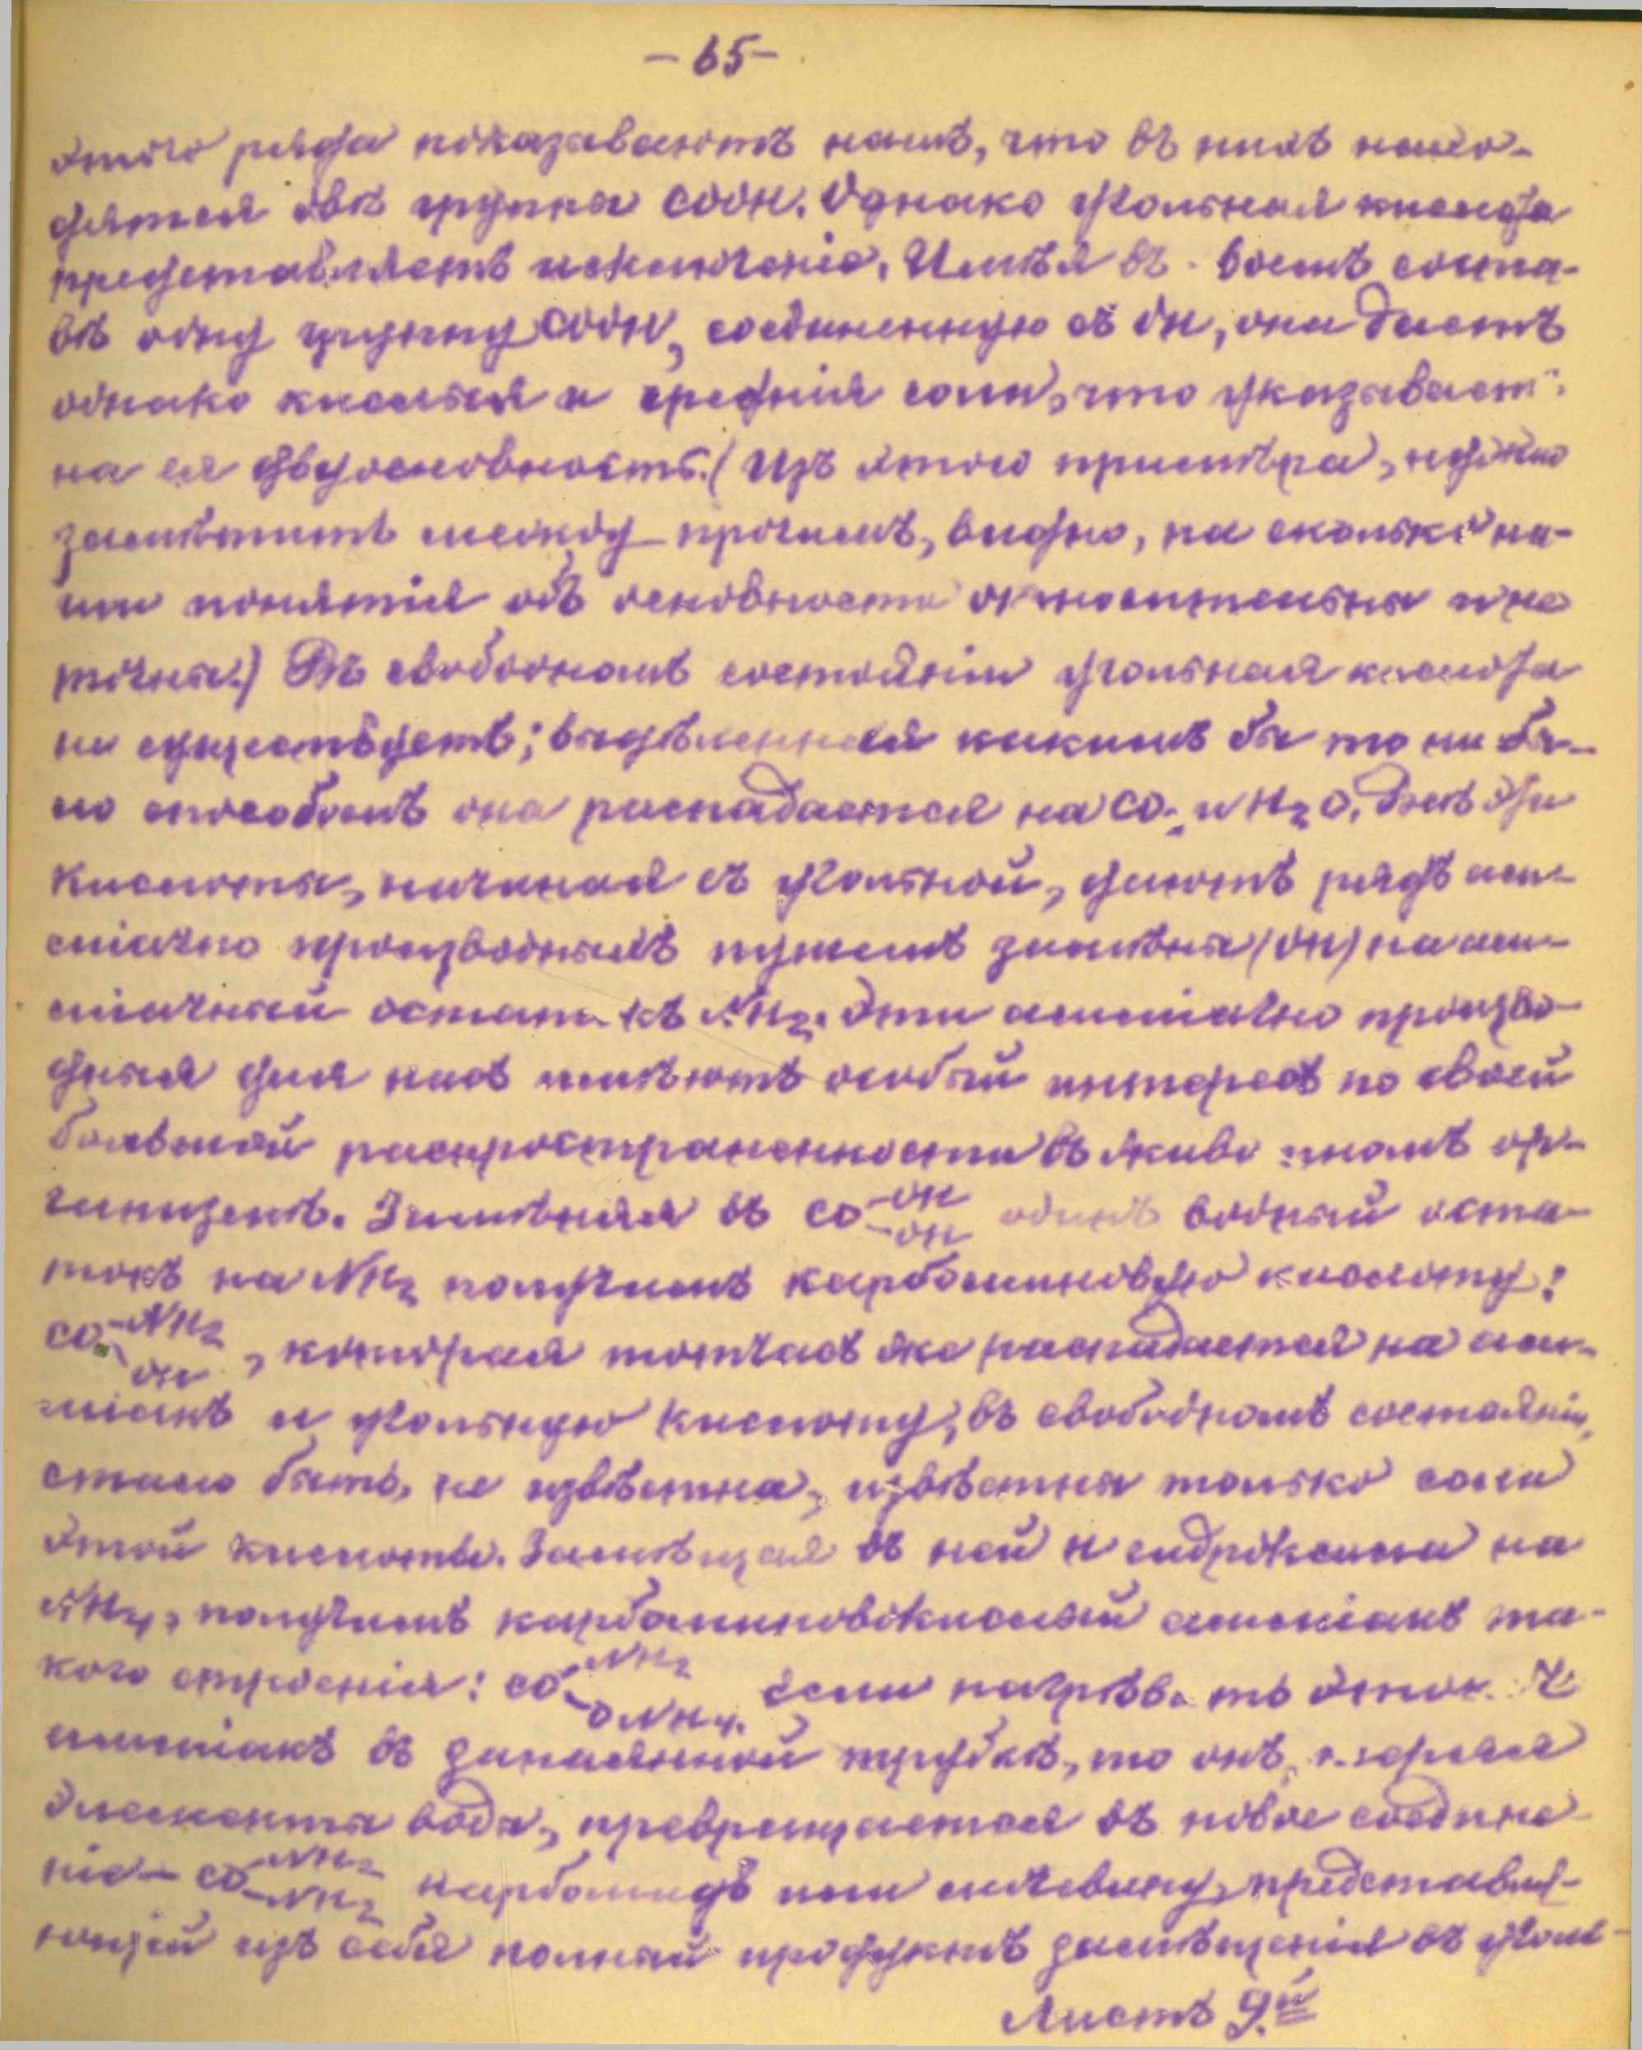 -65-
этого ряда показываютъ намъ, что въ нихъ нахо-
дятся двѣ группы COOH. Однако угольная кислота
представляетъ исключеніе. Имѣя въ своемъ соста-
вѣ одну группу COOH, соединенную съ OH, она даетъ
однако кислыя и среднія соли, что указывает
на ея двуосновность. (Изъ этого примѣра, нужно
замѣтить между прочимъ, видно, на сколько на-
ши понятія объ основности относительны и не
точны.) Въ свободномъ состояніи угольная кислота
не существуетъ; выдѣленная какимъ бы то ни бы-
ло способомъ она распадается на CO2 и H2O. Всѣ эти
кислоты, начиная съ угольной, даютъ рядъ ам-
міачно производныхъ путемъ замѣны (OH) на ам-
міачный остатокъ NH2. Эти амміачно произво-
дныя для насъ имѣютъ особый интересъ по своей
большой распространенности въ животномъ ор-
ганизмѣ. Замѣняя въ CO-OH-OH одинъ водный оста-
токъ на NH2 получимъ карбаминовую кислоту:
CO-NH2-OH, которая тотчасъ же распадается на ам-
міакъ и угольную кислоту; въ свободномъ состояніи,
стало быть, не извѣстна, извѣстны только соли
этой кислоты. Замѣщая въ ней H гидроксила на
NH4, получимъ карбаминовокислый амміакъ та-
кого строенія: CO-NH2-ONH4. Если нагрѣвать этот
амміакъ въ запаянной трубкѣ, то онъ, теряя
элементы воды, превращается въ новое соедине-
ніе - CO-NH2-NH2 карбамидъ или мочевину, представля-
ющей изъ себя полный продуктъ замѣщенія въ уголь-
Листъ 9.й